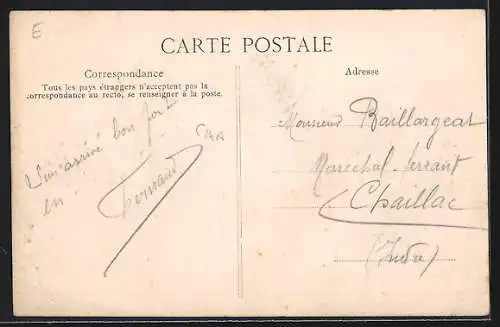 E
CARTE POSTALE
Correspondance
Tous les pays étrangers n'acceptent pas la
correspondance au recto, se renseigner à la poste.
arrivé bon port
en
Fernand
Adresse
Monsieur Baillargeat
Maréchal-ferrant
Chaillac
(Indre)